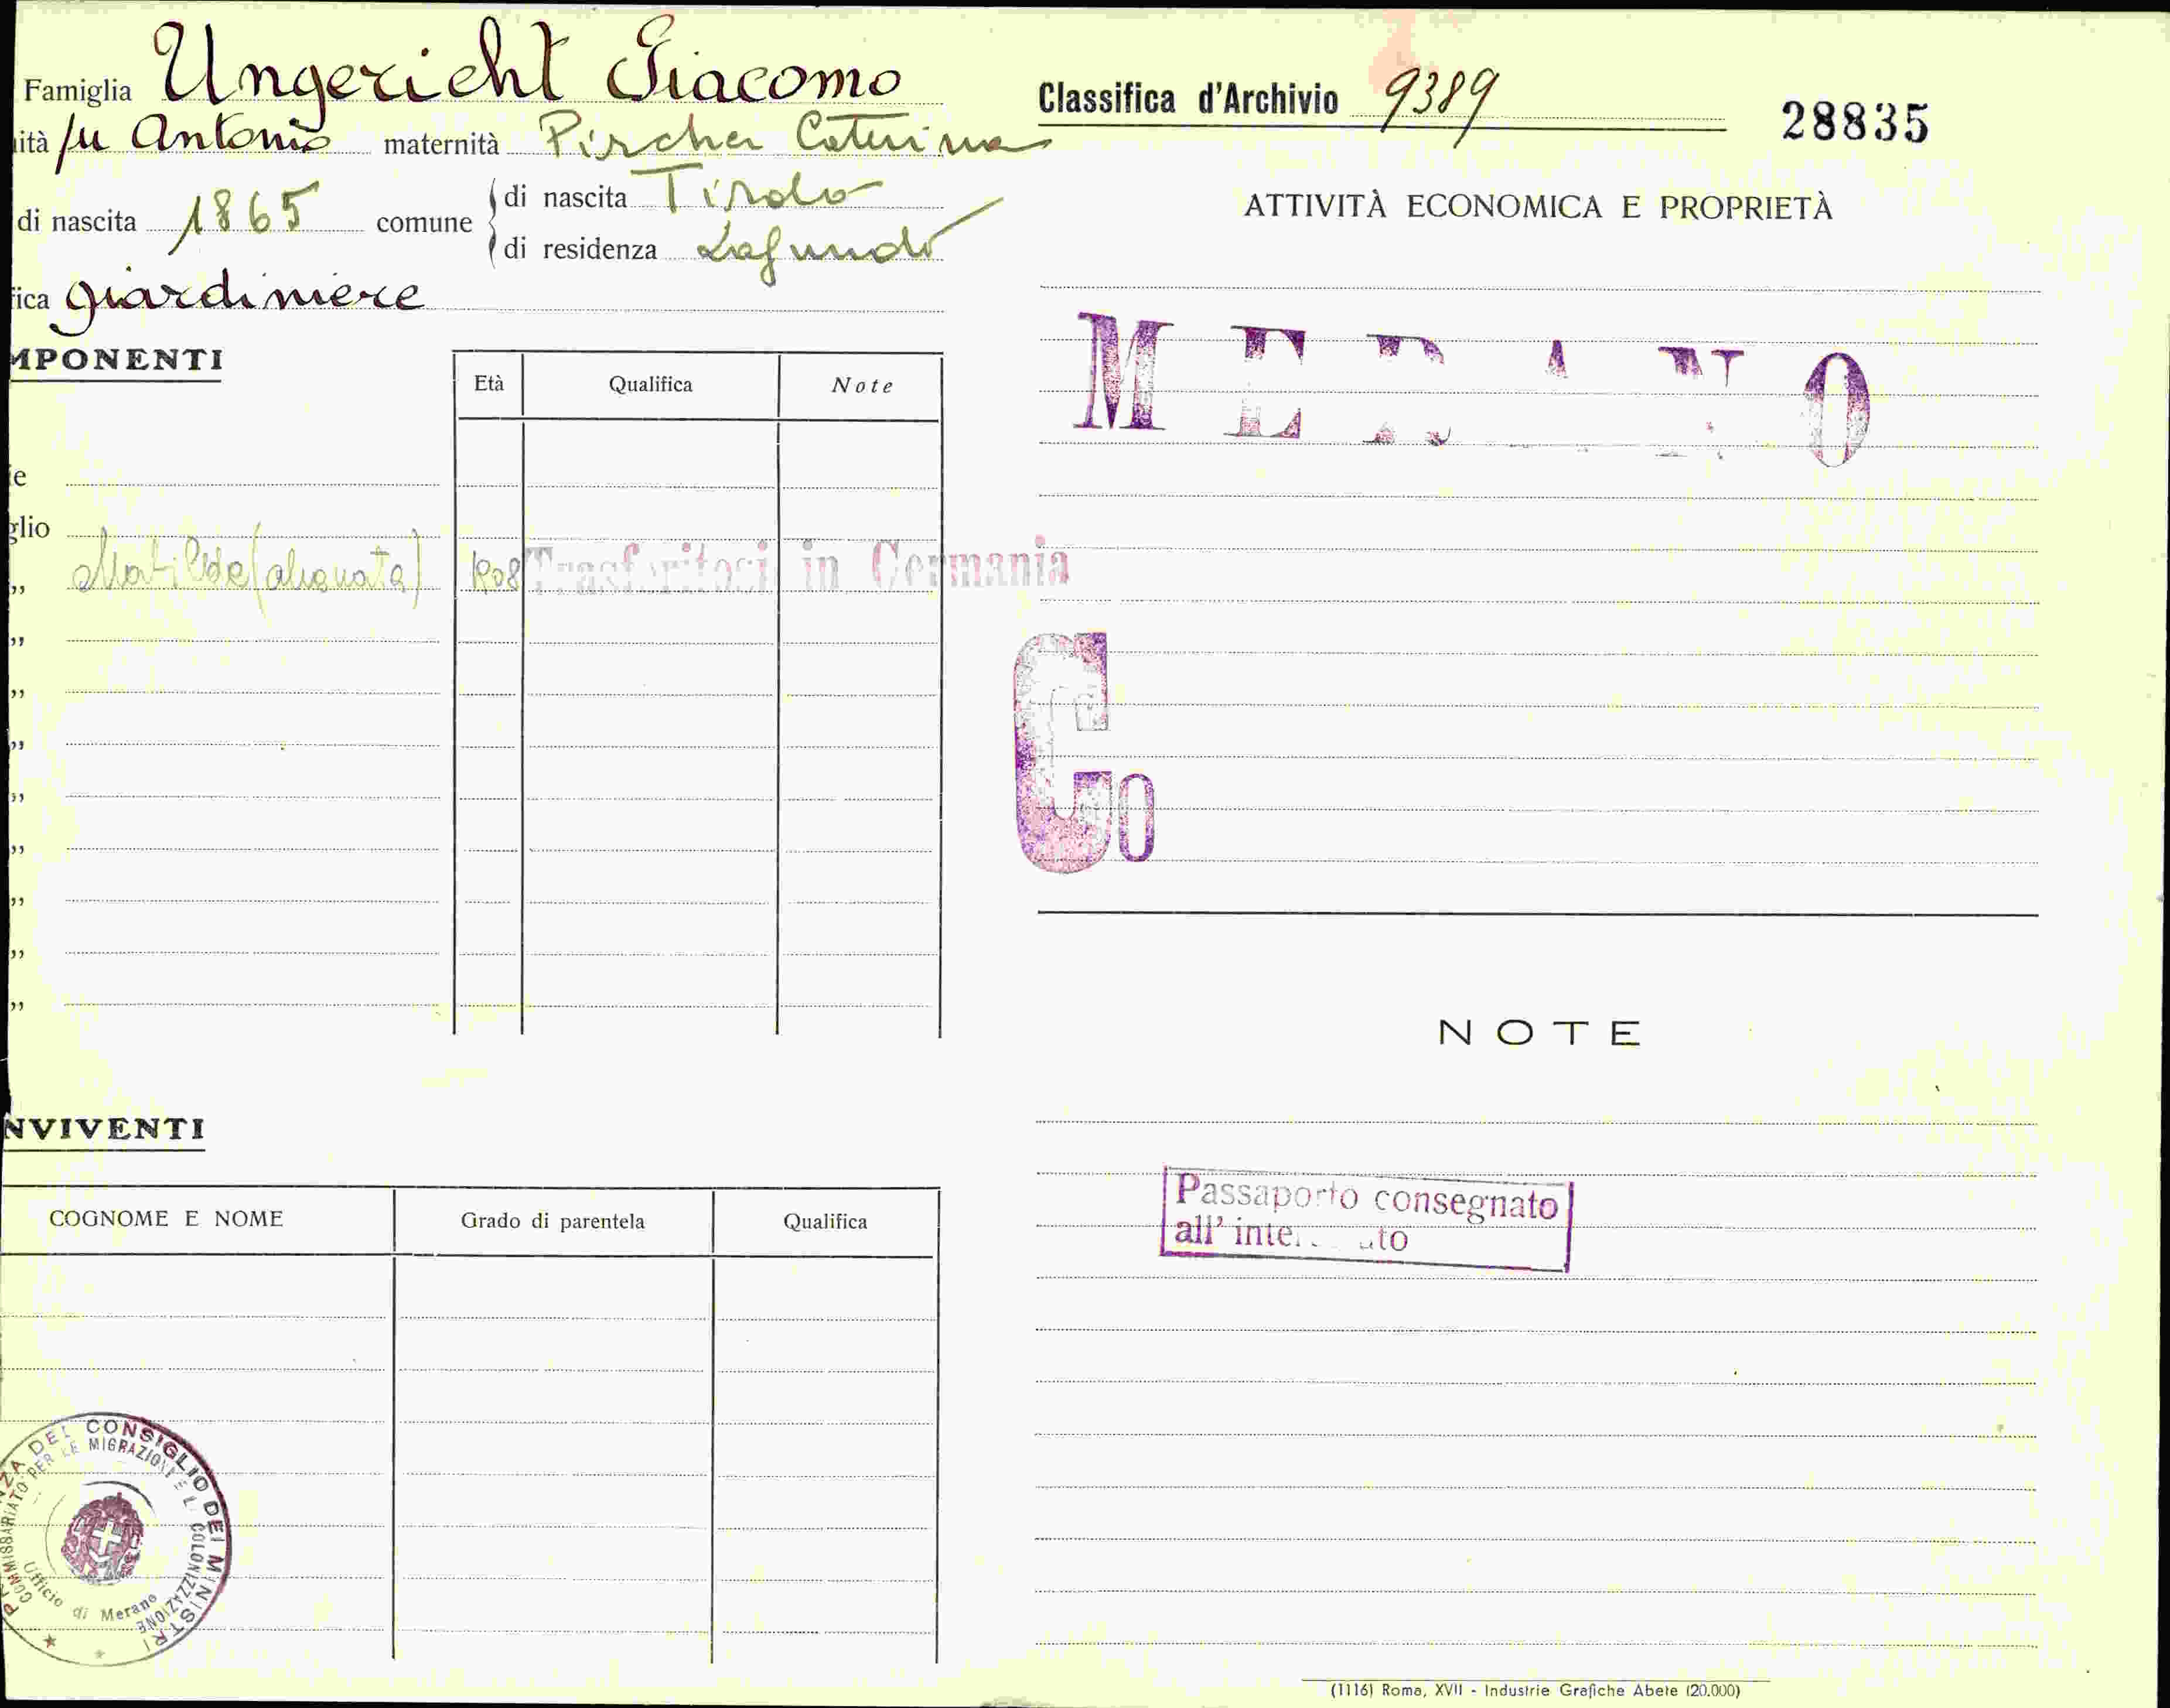 Famiglia Ungericht Giacomo
ità fu Antonio maternità Pircher Caterina
di nascita 1865 comune di nascita Tirolo
di residenza Lagundo
ica giardiniere
MPONENTI
Età Qualifica Note
e
glio
„ Matilde (abiguata) 1908 Trasferitosi in Germania
„
„
„
„
„
„
„
„
NVIVENTI
COGNOME E NOME Grado di parentela Qualifica
DEL CONSIGLIO DEI MINISTRI
COMMISSARIATO PER LE MIGRAZIONI E L COLONIZZAZIONE
Ufficio di Merano
Classifica d'Archivio 9389
28835
ATTIVITÀ ECONOMICA E PROPRIETÀ
MERANO
Go
NOTE
Passaporto consegnato
all'
(1116) Roma, XVII - Industrie Grafiche Abete (20.000)